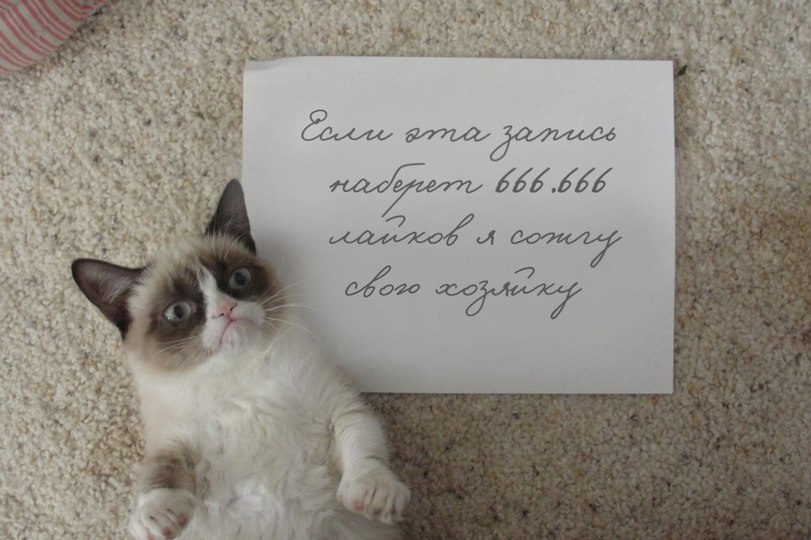 Если эта запись
наберет 666.666
лайков я сожгу
свою хозяйку